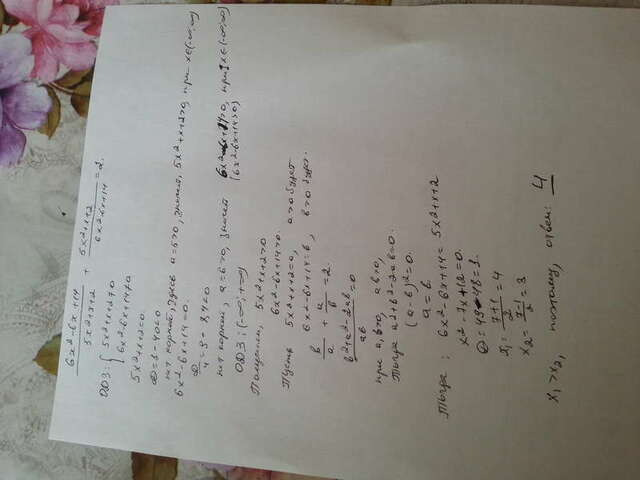 6x²-6x+14 / 5x²+x+2 + 5x²+x+2 / 6x²-6x+14 = 2.
ОДЗ: { 5x²+x+2≠0
6x²-6x+14≠0
5x²+x+2=0.
D=1-40<0
нет корней, здесь a=5>0, значит, 5x²+x+2>0, при x∈(-∞;∞)
6x²-6x+14=0.
D/4=9-84<0
нет корней, a=6>0, значит 6x²-6x+14>0, при x∈(-∞;∞)
(6x²-6x+14>0)
ОДЗ: (-∞;+∞)
Получили, 5x²+x+2>0
6x²-6x+14>0.
Пусть 5x²+x+2=a, a>0 будет
6x²-6x+14=b, b>0 будет.
b/a + a/b = 2.
b²+a²-2ab / ab = 0
при a,b>0, ab>0,
Тогда a²+b²-2ab=0.
(a-b)²=0.
a=b.
Тогда: 6x²-6x+14=5x²+x+2
x²-7x+12=0.
D=49-48=1.
x₁=7+1/2=4
x₂=7-1/2=3
x₁>x₂, поэтому, ответ: 4